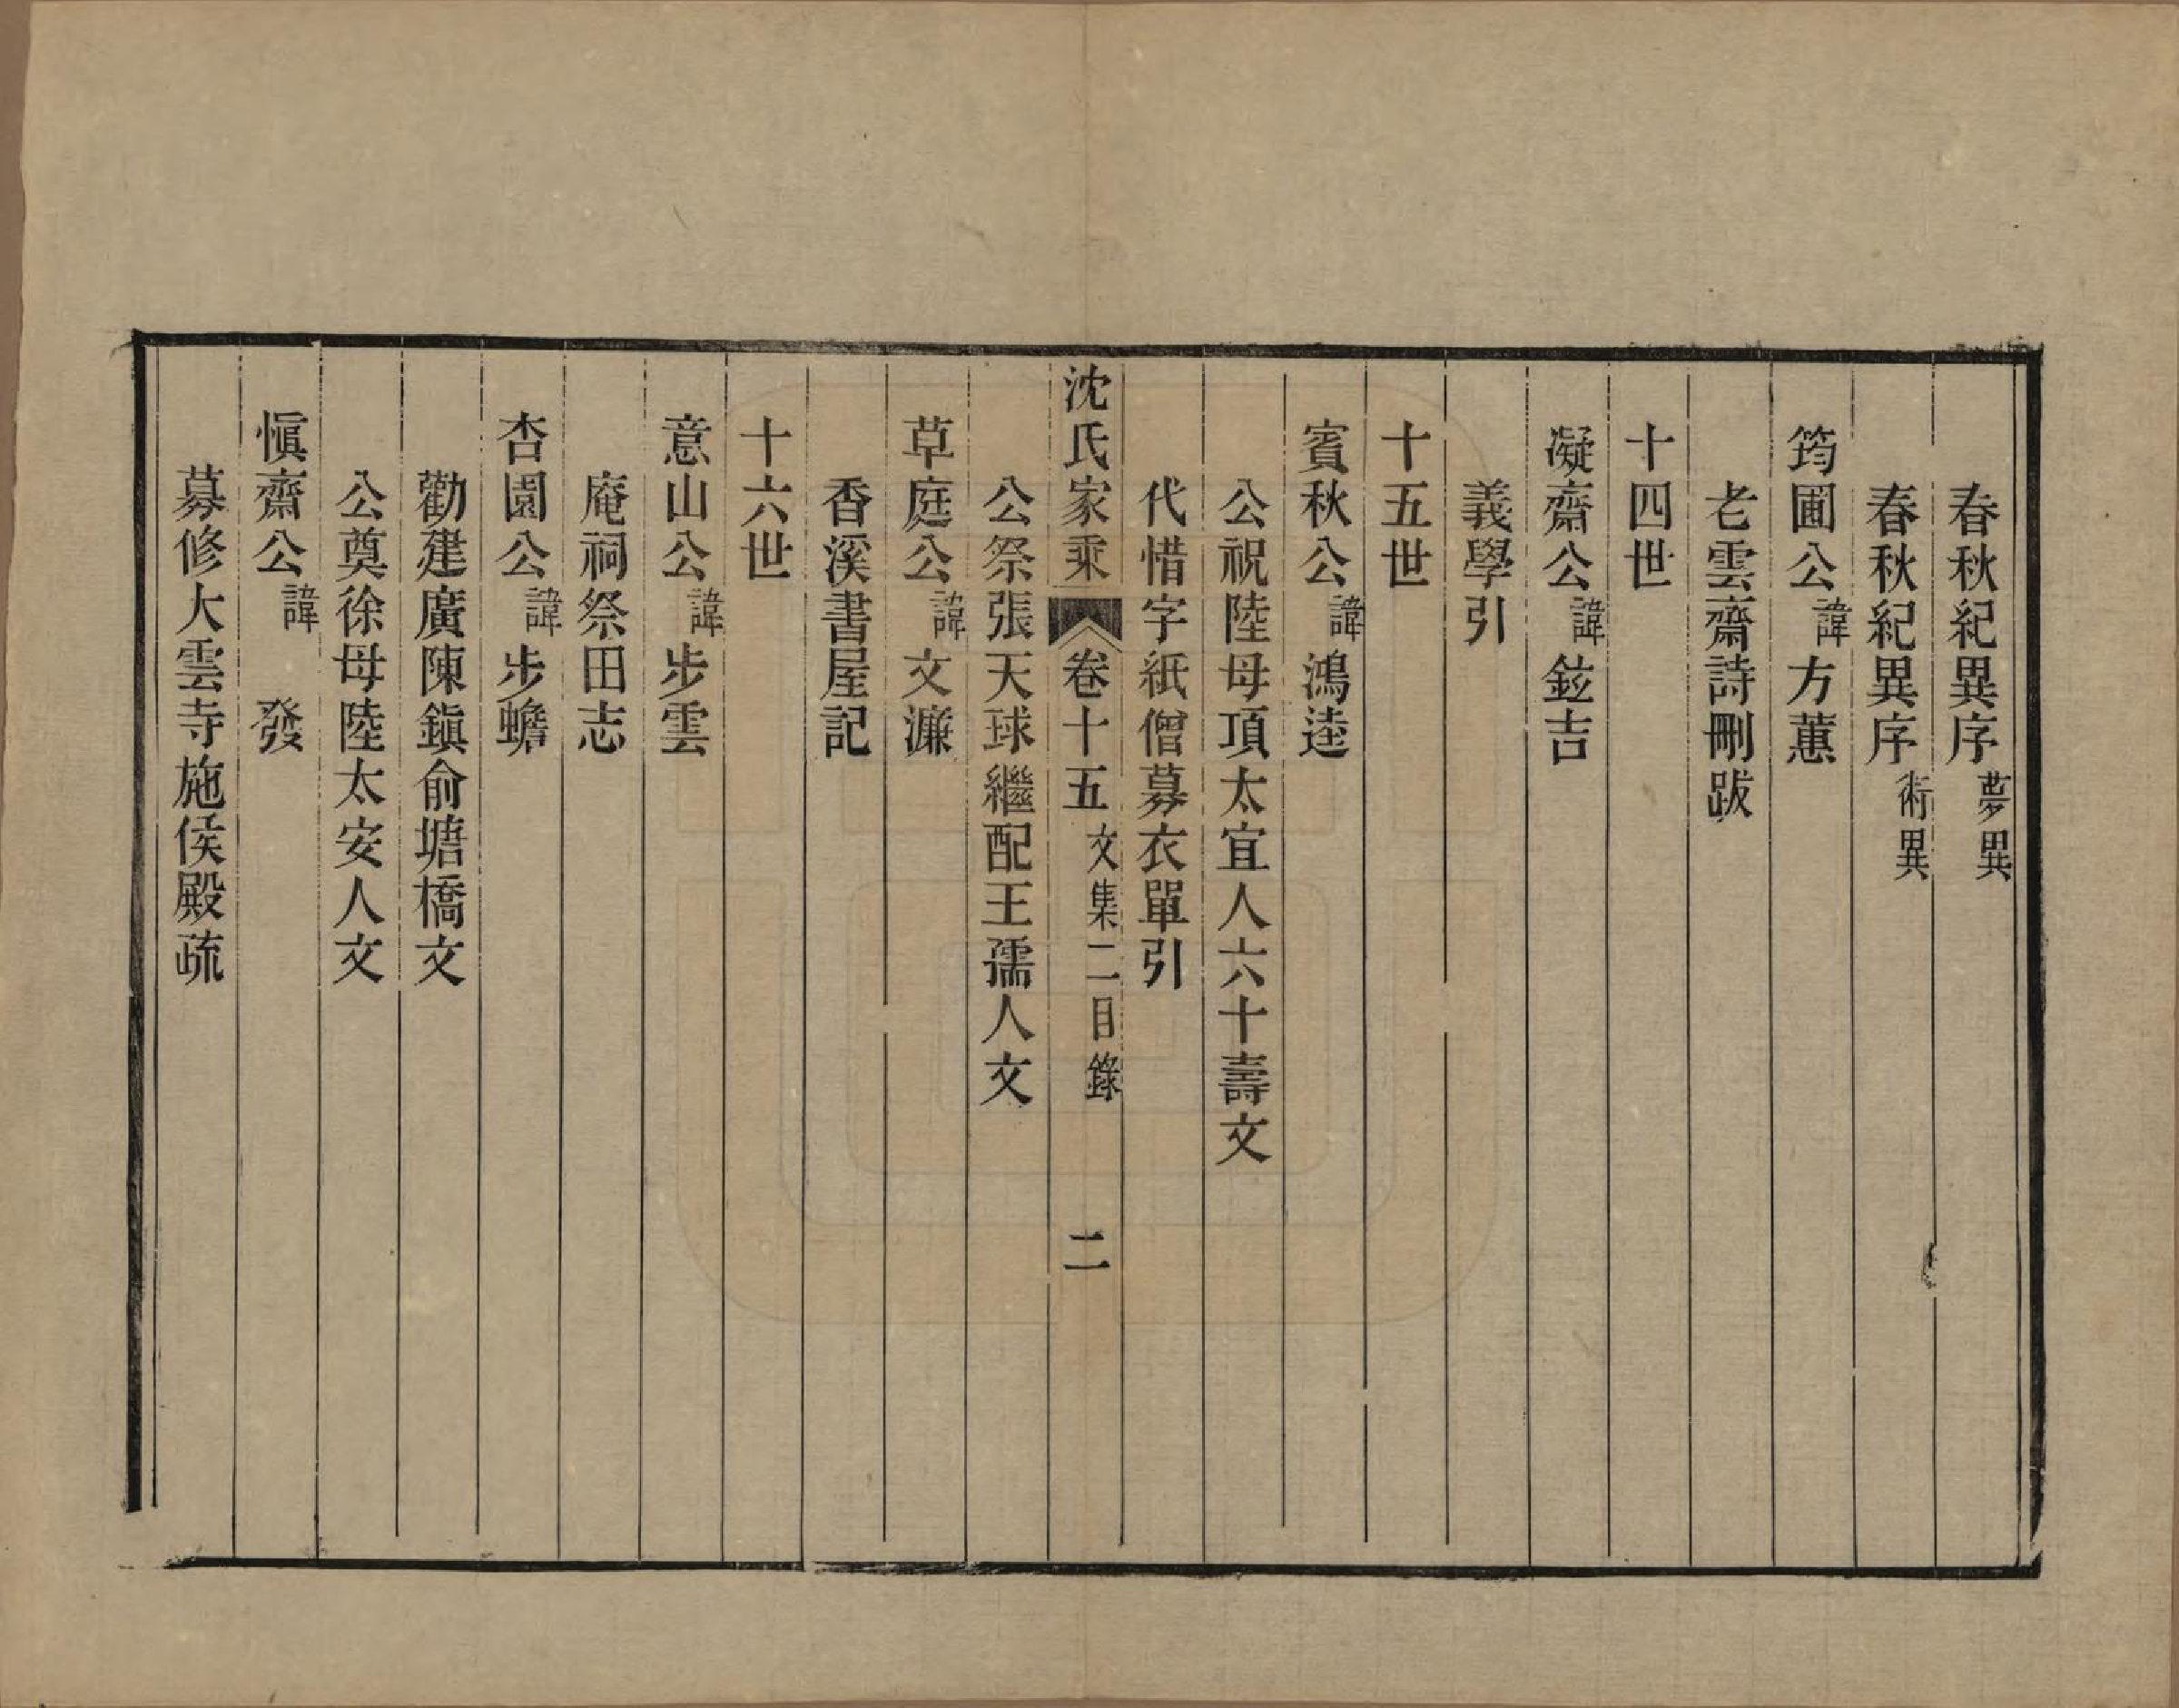 春秋紀異序夢異
春秋紀異序術異
筠圃公諱方蕙
老雲齋詩刪跋
十四世
凝齋公諱鈜吉
義學引
十五世
賓秋公諱鴻逵
公祝陸母項太宜人六十壽文
代惜字紙僧募衣單引
沈氏家乘 卷十五 文集二目錄 二
公祭張天球繼配王孺人文
草庭公諱文濂
香溪書屋記
十六世
意山公諱步雲
庵祠祭田志
杏園公諱步蟾
勸建廣陳鎭俞塘橋文
公奠徐母陸太安人文
愼齋公諱 發
募修大雲寺施侯殿疏